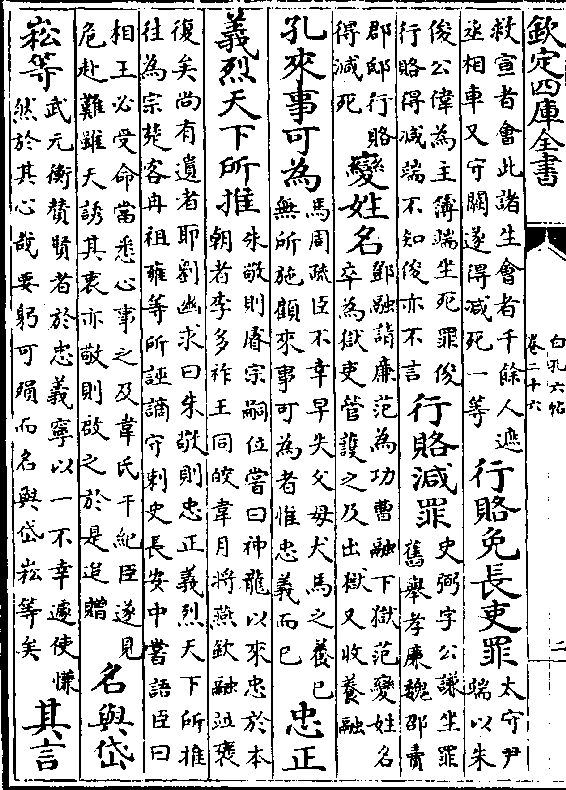 欽定四庫全書
白孔六帖
卷二十六
二
救宣者會此諸生會者千餘人遮
丞相車又守闕遂得減死一等
行賂免長吏罪
太守尹
端以朱
俊公偉為主簿端坐死罪俊
行賂得減端不知俊亦不言
行賂減罪
史弼字公謙坐罪
舊舉孝廉魏邵賣
郡邸行賂
得減死
變姓名
鄧融請廉范為功曹融下獄范變姓名
卒為獄吏管護之及出獄又收養融
孔來事可為
馬周疏臣不幸早失父母犬馬之養已
無所施顧來事可為者惟忠義而已
忠正
義烈天下所推
朱敬則睿宗嗣位嘗曰神龍以來忠於本
朝者李多祚王同皎韋月將燕欽融並褒
復矣尚有遺者耶劉幽求曰朱敬則忠正義烈天下所推
往為宗楚客冉祖雍等所誣謫守刺史長安中嘗語臣曰
相王必受命當悉心事之及韋氏干紀臣遂見
危赴難雖天誘其衷亦敬則啟之於是追贈
名與岱
崧等
武元衡贊賢者於忠義寧以一不幸遽使慊
然於其心哉要躬可殞而名與岱崧等矣
其言